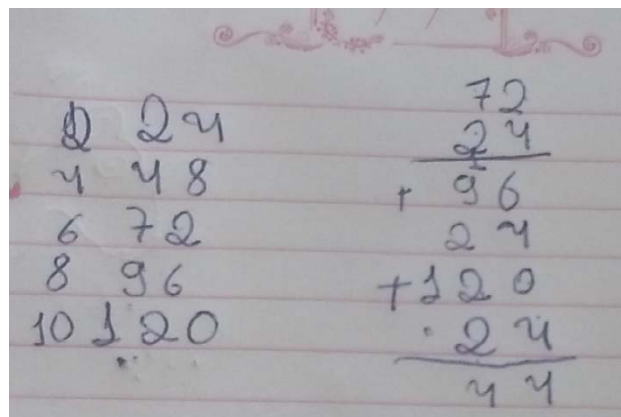 2 24
4 48
6 72
8 96
10 120
72
24
+ 96
24
+120
24
44